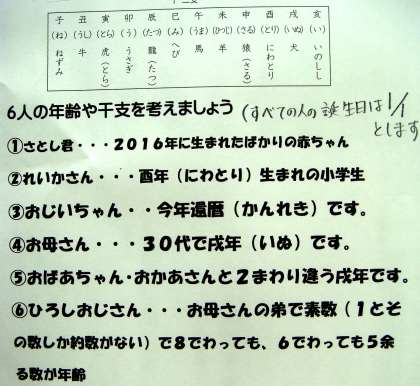 子 丑 寅 卯 辰 巳 午 未 申 酉 戌 亥
(ね) (うし) (とら) (う) (たつ) (み) (うま) (ひつじ) (さる) (とり) (いぬ) (い)
ねずみ 牛 虎(とら) うさぎ 龍(たつ) へび 馬 羊 猿(さる) にわとり 犬 いのしし
6人の年齢や干支を考えましょう (すべての人の誕生日は1/1
とします
①さとし君・・・2016年に生まれたばかりの赤ちゃん
②れいかさん・・・酉年(にわとり)生まれの小学生
③おじいちゃん・・今年還暦(かんれき)です。
④お母さん・・・30代で戌年(いぬ)です。
⑤おばあちゃん・おかあさんと2まわり違う戌年です。
⑥ひろしおじさん・・・お母さんの弟で素数(1とそ
の数しか約数がない)で8でわっても、6でわっても5余
る数が年齢